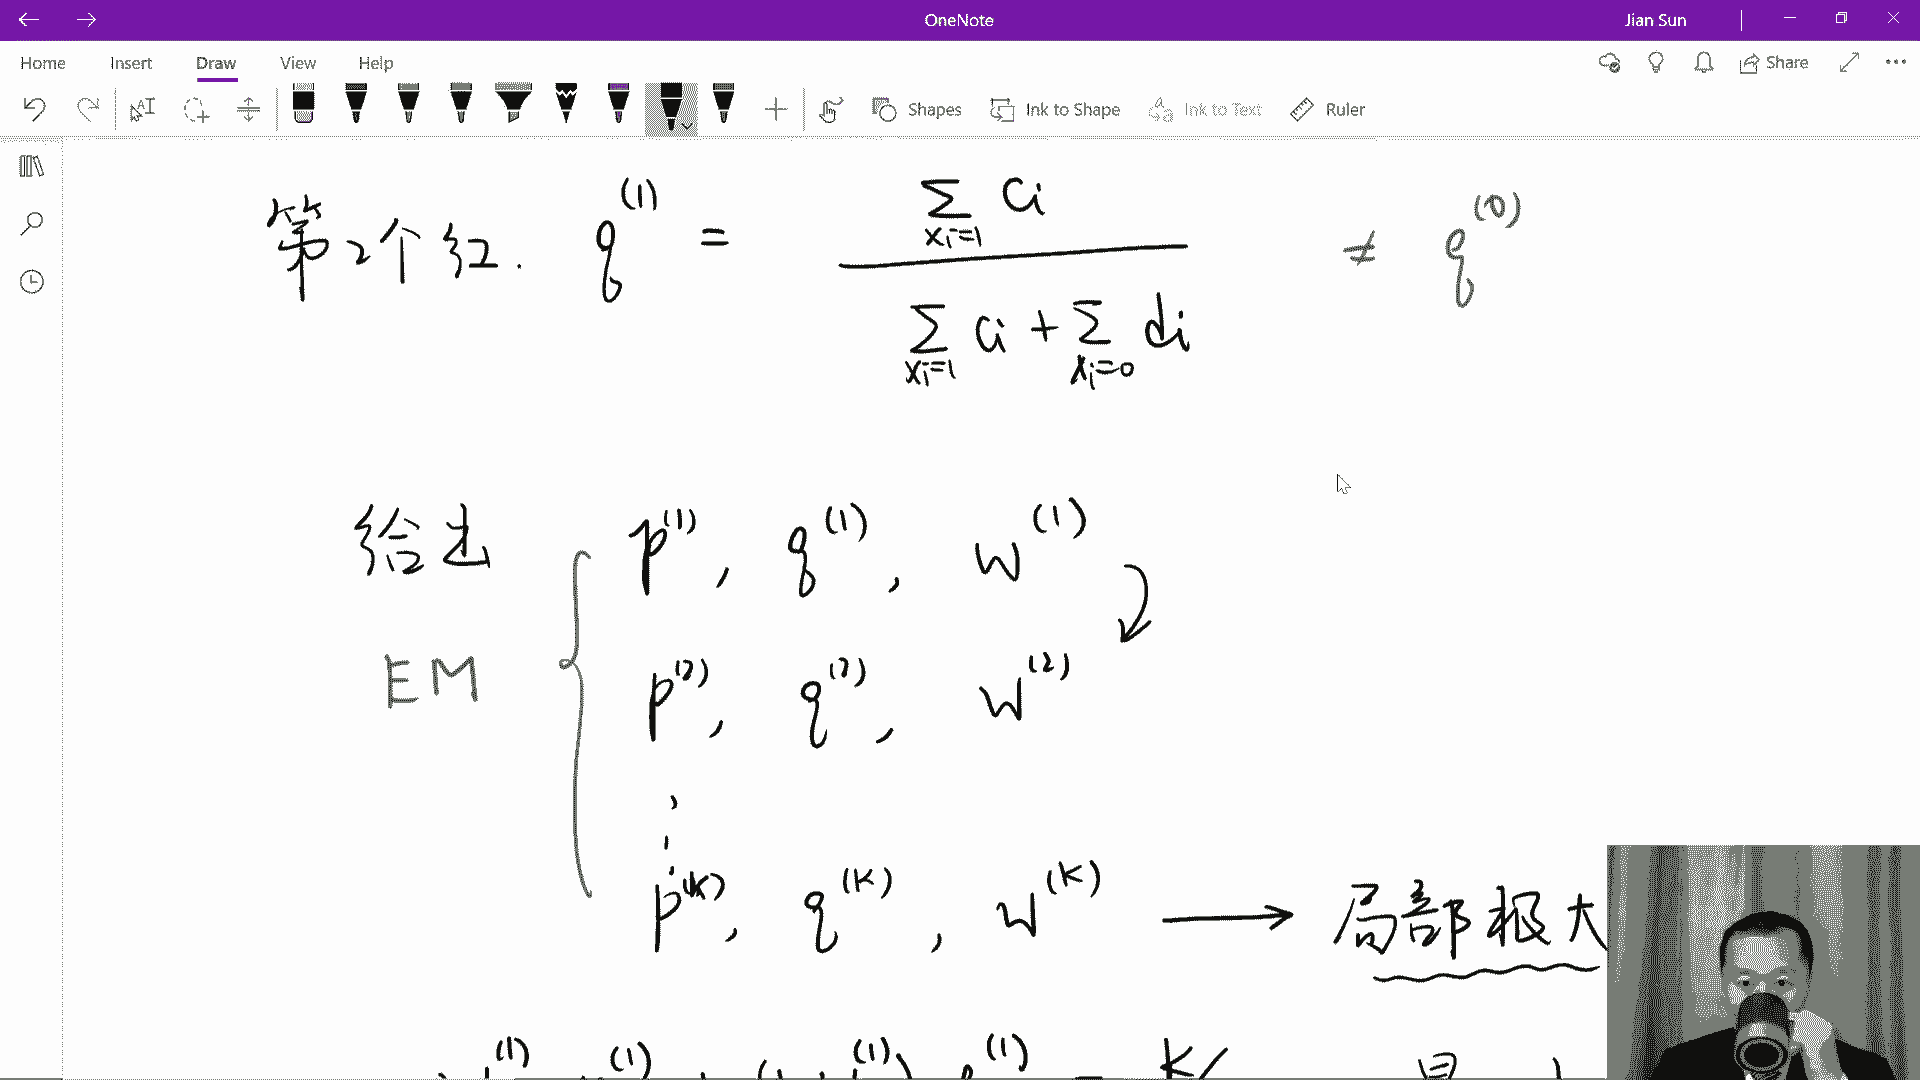 OneNote
Jian Sun
Home Insert Draw View Help Share
Shapes Ink to Shape Ink to Text Ruler
第2个红. q^(1) = \frac{\sum_{xi=1} Ci}{\sum_{xi=1} Ci + \sum_{xi=0} di} ≠ q^(0)
给出 p^(1), q^(1), w^(1)
EM p^(2), q^(2), w^(2)
⋮
p^(k), q^(k), w^(k) → 局部极大